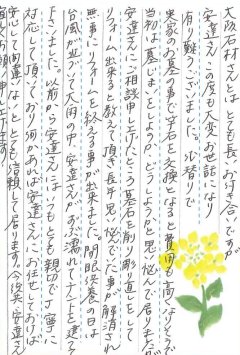 大阪石材さんとはとても長いお付き合いですが
安達さんこの度も大変お世話になり
有り難うございました。水替りで
実家のお墓事で字石を交換となると費用も高くなりそうで
当初は墓じまいをしようか、どうしようかと思い悩んで居りましたが
安達さんに相談申し上げたところ墓石を削り彫直しをして
リフォーム出来ると教えて頂き長年思い悩んでた事が解消され
無事にリフォームを終える事が出来ました。開眼供養の日は
台風が近づいて大雨の中安達さんがずぶ濡れでテントを建て
下さいました。以前から安達さんはいつもとても親切で丁寧に
対応して頂いており何かあれば安達さんにお任せしておけば
安心して間違いないととても信頼して居ります。今後共安達さん
宜しくお願い申し上げます